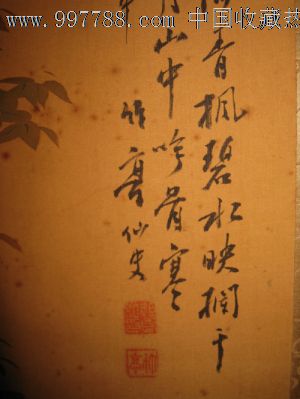 www.997788.com 中国收藏热
青枫碧水映阑干
山中吟骨寒
竹亭仙史
竹亭